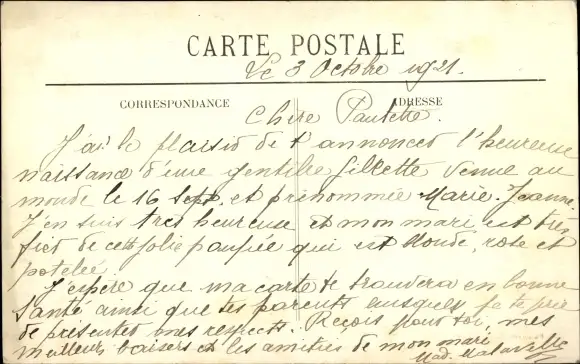 CARTE POSTALE
Le 3 Octobre 1921.
CORRESPONDANCE
ADRESSE
Chère Paulette.
J'ai le plaisir de t'annoncer l'heureuse
naissance d'une gentille fillette venue au
monde le 16 Sept, et prénommée Marie-Jeanne.
J'en suis très heureuse et mon mari est très
fier de cette jolie poupée qui est blonde, rose et
potelée
J'espère que ma carte te trouvera en bonne
santé ainsi que tes parents auxquels je te prie
de présenter mes respects. Reçois pour toi, mes
meilleurs baisers et les amitiés de mon mari
Mad.